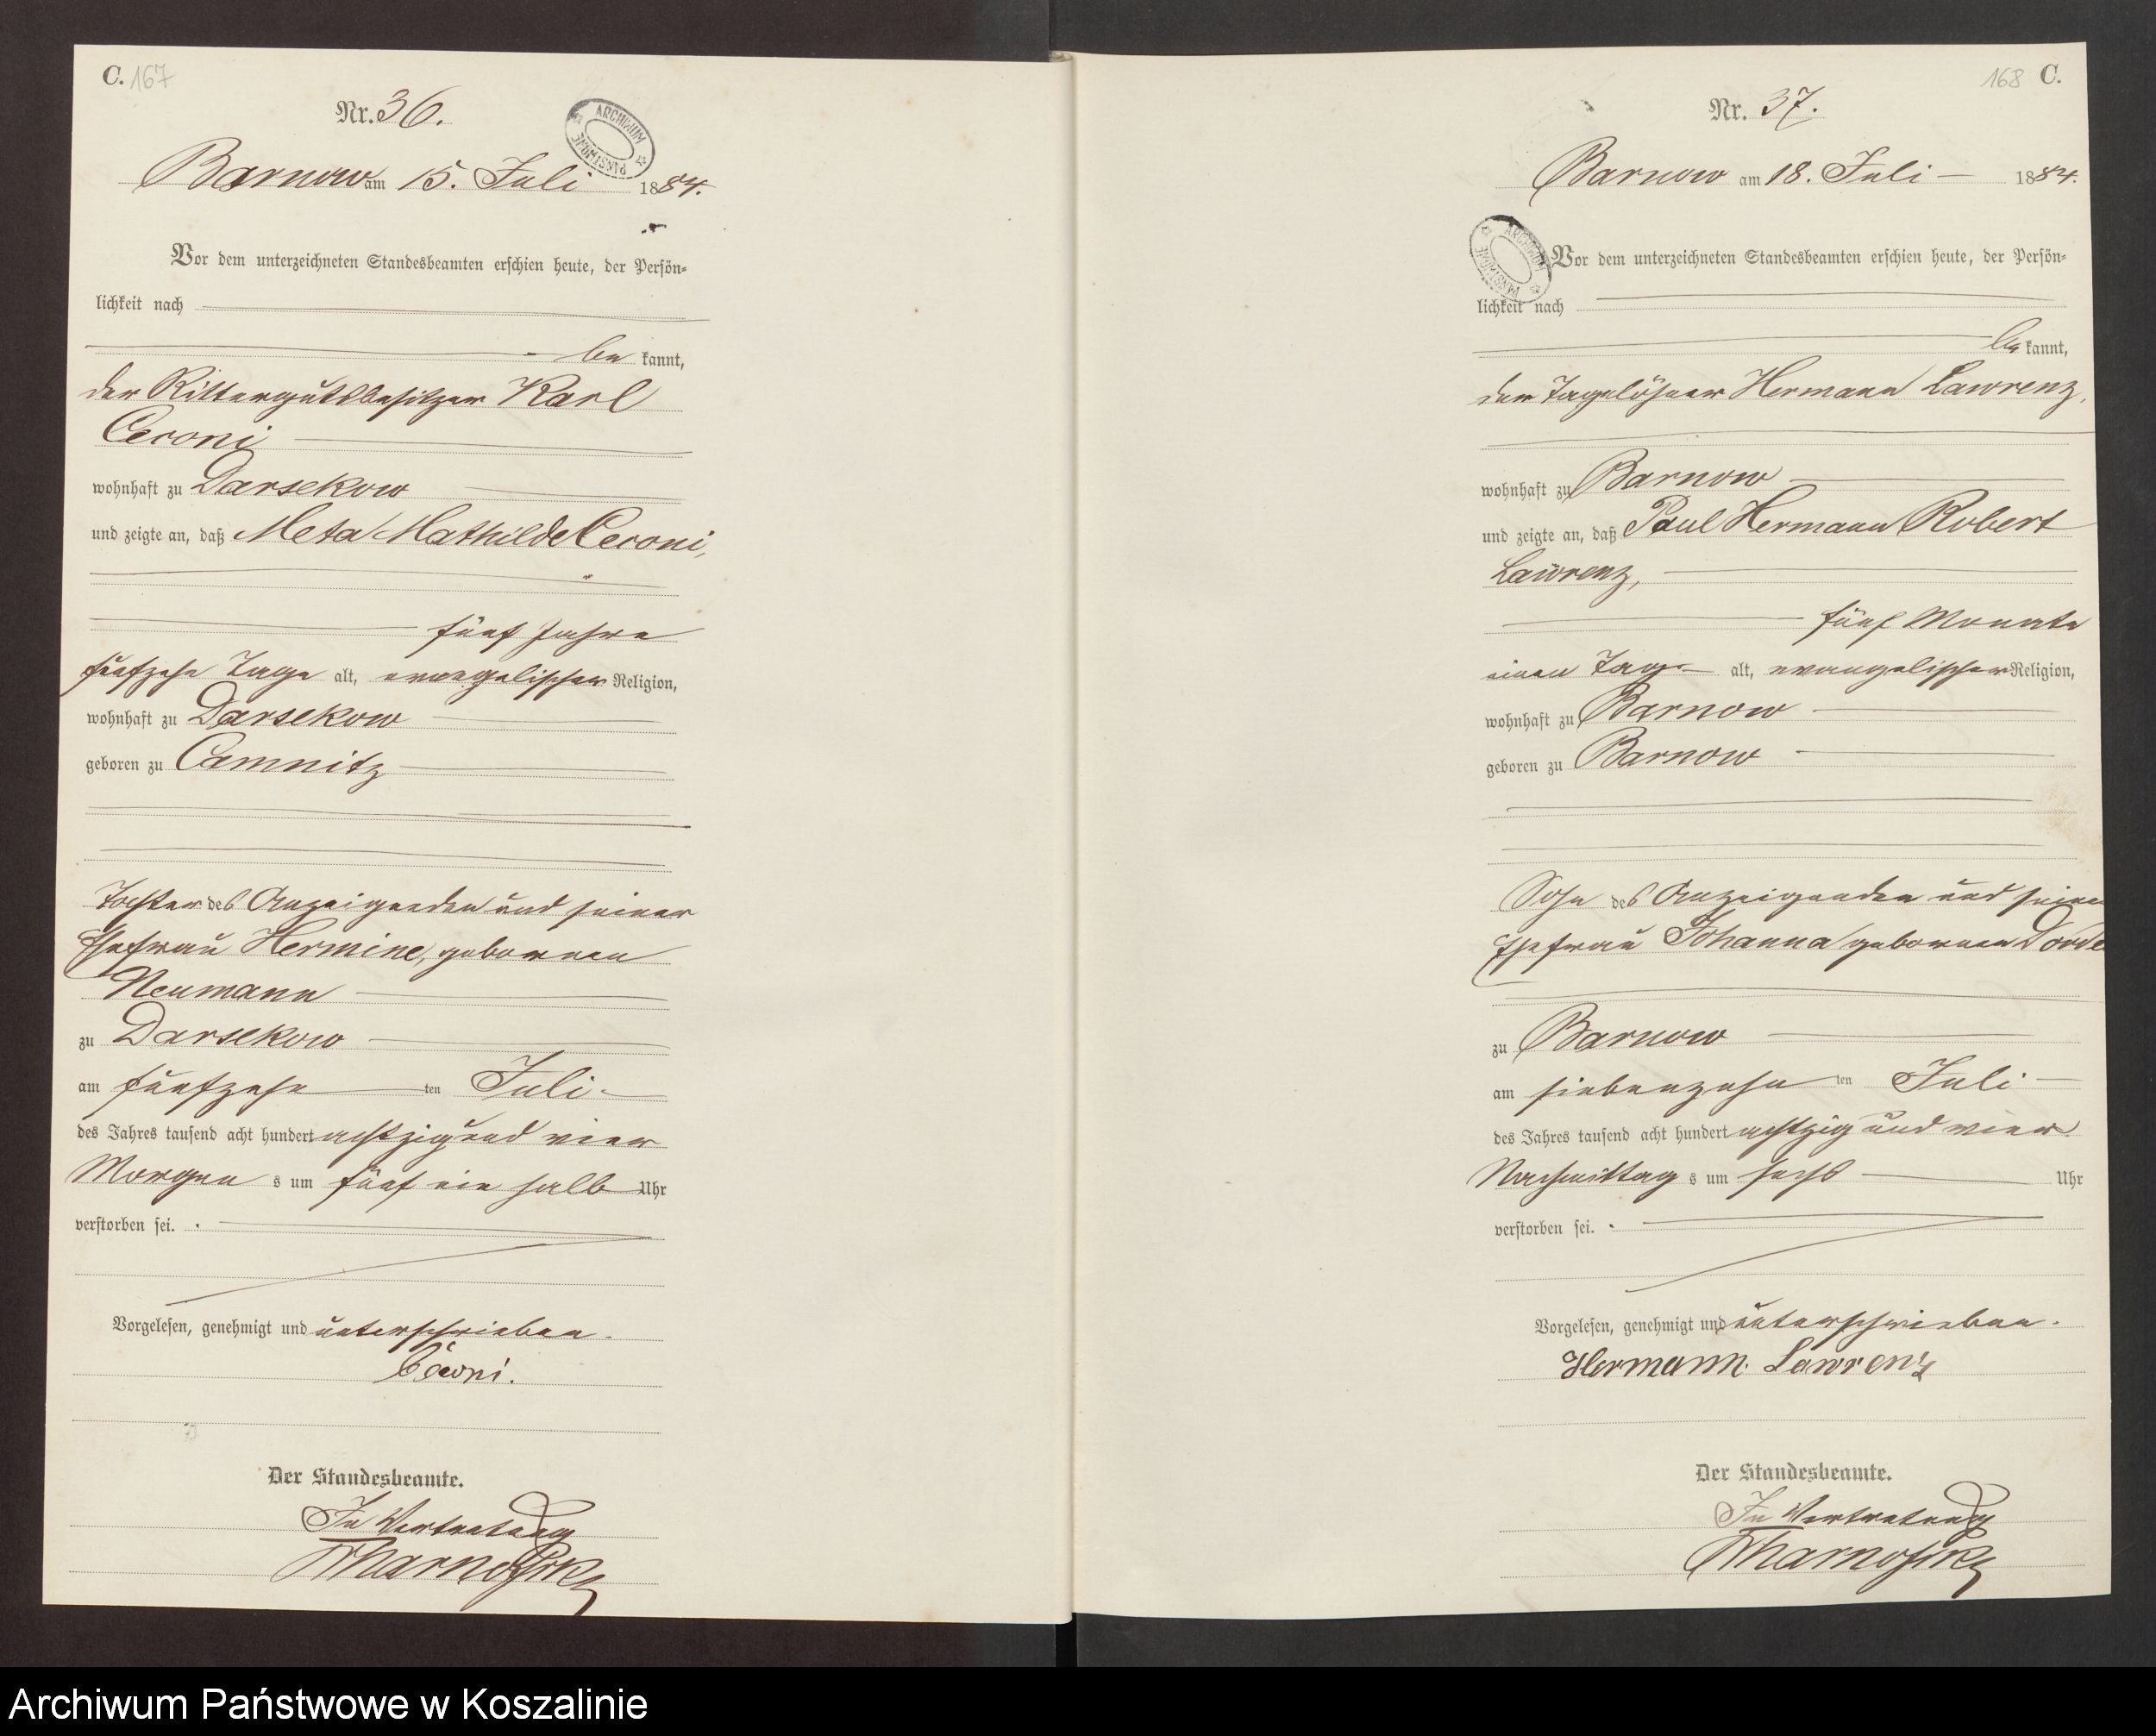 C. 167
Nr. 36.
ARCHIWUM PAŃSTWOWE
Barnow am 15. Juli 1884.
Vor dem unterzeichneten Standesbeamten erschien heute, der Persön-
lichkeit nach
be kannt,
der Rittergutsbesitzer Karl
Ceconi
wohnhaft zu Darsekow
und zeigte an, daß Meta Mathilde Ceconi,
fünf Jahre
fünfzehn Tage alt, evangelischer Religion,
wohnhaft zu Darsekow
geboren zu Camnitz
Tochter des Anzeigenden und seiner
Ehefrau Hermine, geborenen
Neumann
zu Darsekow
am fünfzehn ten Juli
des Jahres tausend acht hundert achtzig und vier
Morgen s um fünf ein halb Uhr
verstorben sei.
Vorgelesen, genehmigt und unterschrieben.
Céconi.
Der Standesbeamte.
In Vertretung
168 C.
Nr. 37.
Barnow am 18. Juli 1884.
ARCHIWUM PAŃSTWOWE
Vor dem unterzeichneten Standesbeamten erschien heute, der Persön-
lichkeit nach
be kannt,
der Tagelöhner Hermann Lawrenz,
wohnhaft zu Barnow
und zeigte an, daß Paul Hermann Robert
Lawrenz,
fünf Monate
einen Tag alt, evangelischer Religion,
wohnhaft zu Barnow
geboren zu Barnow
Sohn des Anzeigenden und seiner
Ehefrau Johanna geborenen
zu Barnow
am siebenzehn ten Juli
des Jahres tausend acht hundert achtzig und vier
Nachmittag s um sechs Uhr
verstorben sei.
Vorgelesen, genehmigt und unterschrieben.
Hermann Lawrenz
Der Standesbeamte.
In Vertretung
Archiwum Państwowe w Koszalinie